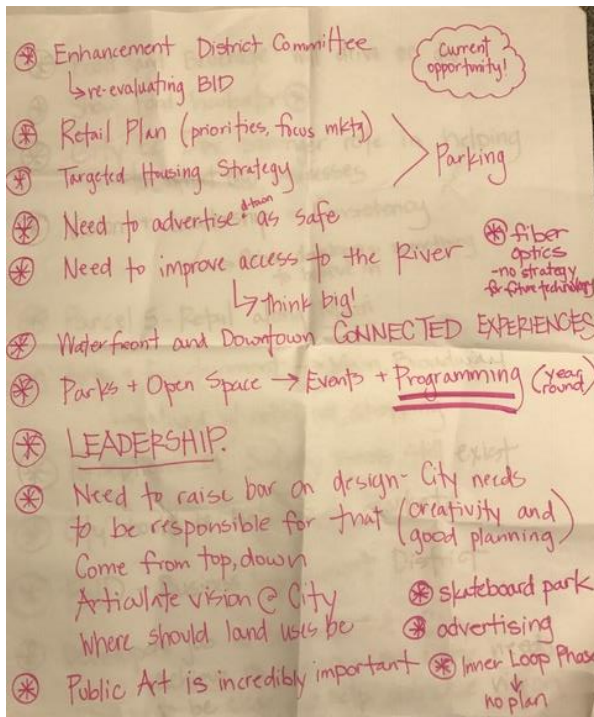 Enhancement District Committee
↳ re-evaluating BID
Current
opportunity!
Retail Plan (priorities, focus mktg)
Targeted Housing Strategy
Parking
Need to advertise d-town as safe
Need to improve access to the River
↳ think big!
fiber
optics
- no strategy
for future technology
Waterfront and Downtown CONNECTED EXPERIENCES
Parks + Open Space → Events + Programming (year
round)
LEADERSHIP.
Need to raise bar on design - City needs
to be responsible for that (creativity and
good planning)
Come from top, down
Articulate vision @ City
Where should land uses be
skateboard park
advertising
Public Art is incredibly important
Inner Loop Phase
↓
no plan